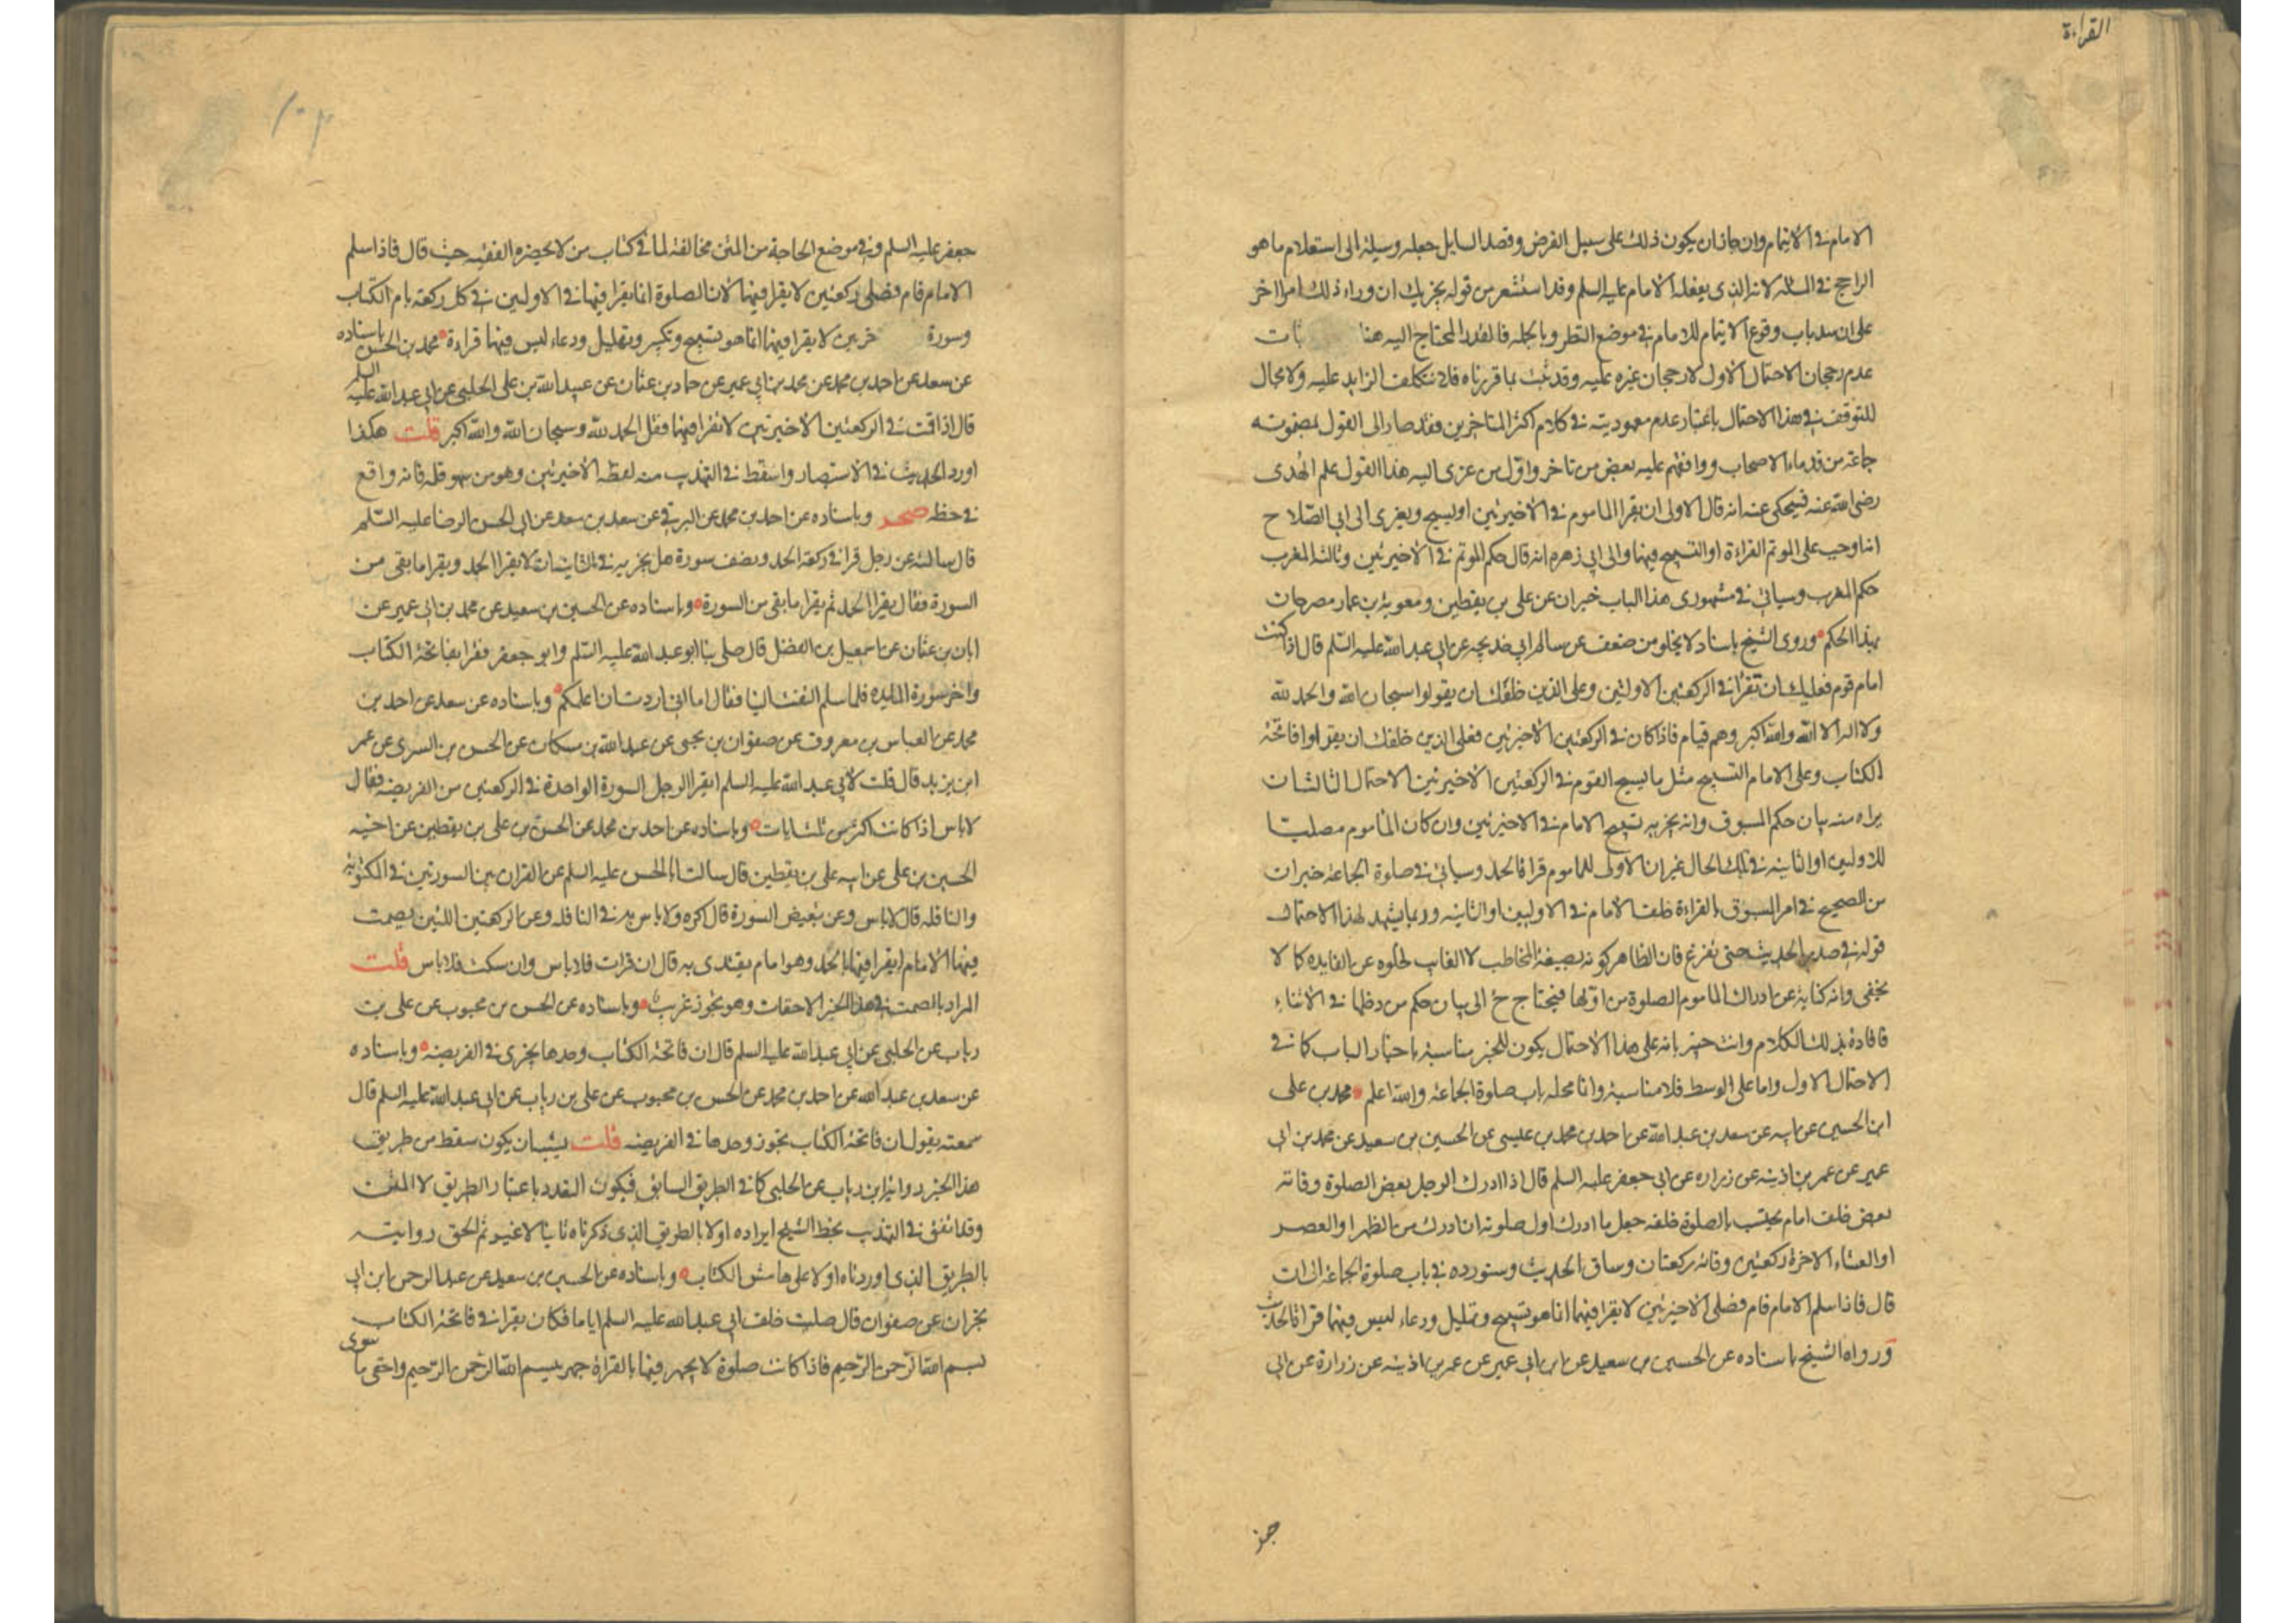 القراءة
الامام في الايتمام وان جاز ان يكون ذلك على سبيل الفرض وقصد السايل جعله وسيلة الى استعلام ما هو
الراجح في المسئلة لانه الذي يفعله الامام عليه السلم وقد استشعر من قوله يجزيك ان وراء ذلك امرا اخر
على ان سد باب وقوع الايتمام للامام في موضع النظر وبالجملة فالقدر المحتاج اليه هنا بات
عدم رجحان الاحتمال الاول لا رجحان غيره عليه وقد ثبت بما قررناه فلا نتكلف الزايد عليه ولا مجال
للتوقف في هذا الاحتمال باعتبار عدم معهوديته في كلام اكثر المتاخرين فقد صار الى القول بمضمونه
جماعة من قدماء الاصحاب ووافقهم عليه بعض من تاخر واول من عزى اليه هذا القول علم الهدى
رضي الله عنه فيحكى عنه انه قال الاولى ان يقرا الماموم في الاخيرتين او يسبح ويعزى الى ابي الصلاح
انه اوجب على الموتم القراءة او التسبيح فيهما والى ابي زهره انه قال حكم الموتم في الاخيرتين وثالثة المغرب
حكم المغرب وسياتي في مشهوري هذا الباب خبران عن علي بن يقطين ومعوية بن عمار مصرحان
بهذا الحكم وروى الشيخ باسناد لا يخلو من ضعف عن سالم ابي خديجه عن ابي عبد الله عليه السلم قال اذا كنت
امام قوم فعليك ان تقرا في الركعتين الاولتين وعلى الذين خلفك ان يقولوا سبحان الله والحمد لله
ولا اله الا الله والله اكبر وهم قيام فاذا كان في الركعتين الاخيرتين فعلى الذين خلفك ان يقراوا فاتحة
الكتاب وعلى الامام التسبيح مثل ما يسبح القوم في الركعتين الاخيرتين الاحتمال الثالث ان
يراد منه بيان حكم المسبوق وانه يجزيه تسبيح الامام في الاخيرتين وان كان الماموم مصليا
للاوليين او الثانية في تلك الحال غير ان الاولى للماموم قراة الحمد وسياتي في صلوة الجماعة خبران
من الصحيح في امر المسبوق بالقراءة خلف الامام في الاوليين او الثانيه وربما يشهد لهذا الاحتمال
قوله في صدر الحديث حتى تفرغ فان الظاهر كونه بصيغة المخاطب لا الغايب لخلوه عن الفايده كما لا
يخفى وانه كناية عن ادراك الماموم الصلوة من اولها فيحتاج ح الى بيان حكم من دخلها في الاثناء
فافاده بذلك الكلام وانت خبير بانه على هذا الاحتمال يكون للخبر مناسبة باخبار الباب كما في
الاحتمال الاول واما على الوسط فلا مناسبة وانما محله باب صلوة الجماعة والله اعلم محمد بن علي
ابن الحسين عن ابيه عن سعد بن عبد الله عن احمد بن محمد بن عيسى عن الحسين بن سعيد عن محمد بن ابي
عمير عن عمر بن اذينه عن زراره عن ابي جعفر عليه السلم قال اذا ادرك الرجل بعض الصلوة وفاته
بعض خلف امام يحتسب بالصلوة خلفه جعل ما ادرك اول صلوته ان ادرك من الظهر او العصر
او العشاء الاخرة ركعتين وفاته ركعتان وساق الحديث وسنورده في باب صلوة الجماعة الى ان
قال فاذا سلم الامام قام فصلى الاخيرتين لا يقرا فيهما انما هو تسبيح وتهليل ودعاء ليس فيهما قراة الحديث
ورواه الشيخ باسناده عن الحسين بن سعيد عن ابن ابي عمير عن عمر بن اذينه عن زرارة عن ابي
جعفر عليه السلم وفي موضع الحاجة من المتن مخالفة لما في كتاب من لا يحضره الفقيه حيث قال فاذا سلم
الامام قام فصلى ركعتين لا يقرا فيهما لان الصلوة انما يقرا فيها في الاولين في كل ركعة بام الكتاب
وسورة خريين لا يقرا فيهما انما هو تسبيح وتكبير وتهليل ودعاء ليس فيهما قراءة محمد بن الحسن باسناده
عن سعد عن احمد بن محمد عن محمد بن ابي عمير عن حماد بن عثمان عن عبيد الله بن علي الحلبي عن ابي عبد الله عليه السلم
قال اذا قمت في الركعتين الاخيرتين لا تقرا فيهما فقل الحمد لله وسبحان الله والله اكبر قلت هكذا
اورد الحديث في الاستبصار واسقط في التهذيب منه لفظة الاخيرتين وهو من سهو قلمه فانه واقع
في خطه صحد وباسناده عن احمد بن محمد عن البرقي عن سعد بن سعد عن ابي الحسن الرضا عليه السلم
قال سالته عن رجل قرا في ركعة الحمد ونصف سورة هل يجزيه في الثانية ان لا يقرا الحمد ويقرا ما بقي من
السورة فقال يقرا الحمد ثم يقرا ما بقي من السورة وباسناده عن الحسين بن سعيد عن محمد بن ابي عمير عن
ابان بن عثمان عن اسمعيل بن الفضل قال صلى بنا ابو عبد الله عليه السلم وابو جعفر فقرا بفاتحة الكتاب
واخر سورة المايده فلما سلم التفت الينا فقال اما اني اردت ان اعلمكم وباسناده عن سعد عن احمد بن
محمد عن العباس بن معروف عن صفوان بن يحيى عن عبد الله بن مسكان عن الحسن بن السري عن عمر
ابن يزيد قال قلت لابي عبد الله عليه السلم ايقرا الرجل السورة الواحدة في الركعتين من الفريضه فقال
لا باس اذا كانت اكثر من ثلث ايات وباسناده عن احمد بن محمد عن الحسن بن علي بن يقطين عن اخيه
الحسين بن علي عن ابيه علي بن يقطين قال سالت ابا الحسن عليه السلم عن القران بين السورتين في المكتوبة
والنافله قال لا باس وعن تبعيض السورة قال كره ولا باس به في النافله وعن الركعتين اللتين يصمت
فيهما الامام ايقرا فيهما بالحمد وهو امام يقتدى به قال ان قرات فلا باس وان سكت فلا باس قلت
المراد بالصمت في هذا الخبر الاخفات وهو تجوز غريب وباسناده عن الحسن بن محبوب عن علي بن
رباب عن الحلبي عن ابي عبد الله عليه السلم قال ان فاتحة الكتاب وحدها يجزي في الفريضه وباسناده
عن سعد بن عبد الله عن احمد بن محمد عن الحسن بن محبوب عن علي بن رباب عن ابي عبد الله عليه السلم قال
سمعته يقول ان فاتحة الكتاب تجوز وحدها في الفريضه قلت يشبه ان يكون سقط من طريق
هذا الخبر رواية ابن رباب عن الحلبي كما في الطريق السابق فيكون التعدد باعتبار الطريق لا المتن
وقد اتفق في التهذيب بخط الشيخ ايراده اولا بالطريق الذي ذكرناه ثانيا لا غير ثم الحق روايته
بالطريق الذي اوردناه اولا على هامش الكتاب وباسناده عن الحسين بن سعيد عن عبد الرحمن ابن ابي
نجران عن صفوان قال صليت خلف ابي عبد الله عليه السلم اياما فكان يقرا في فاتحة الكتاب
بسم الله الرحمن الرحيم فاذا كانت صلوة لا يجهر فيها بالقراة جهر ببسم الله الرحمن الرحيم واخفى ما سوى